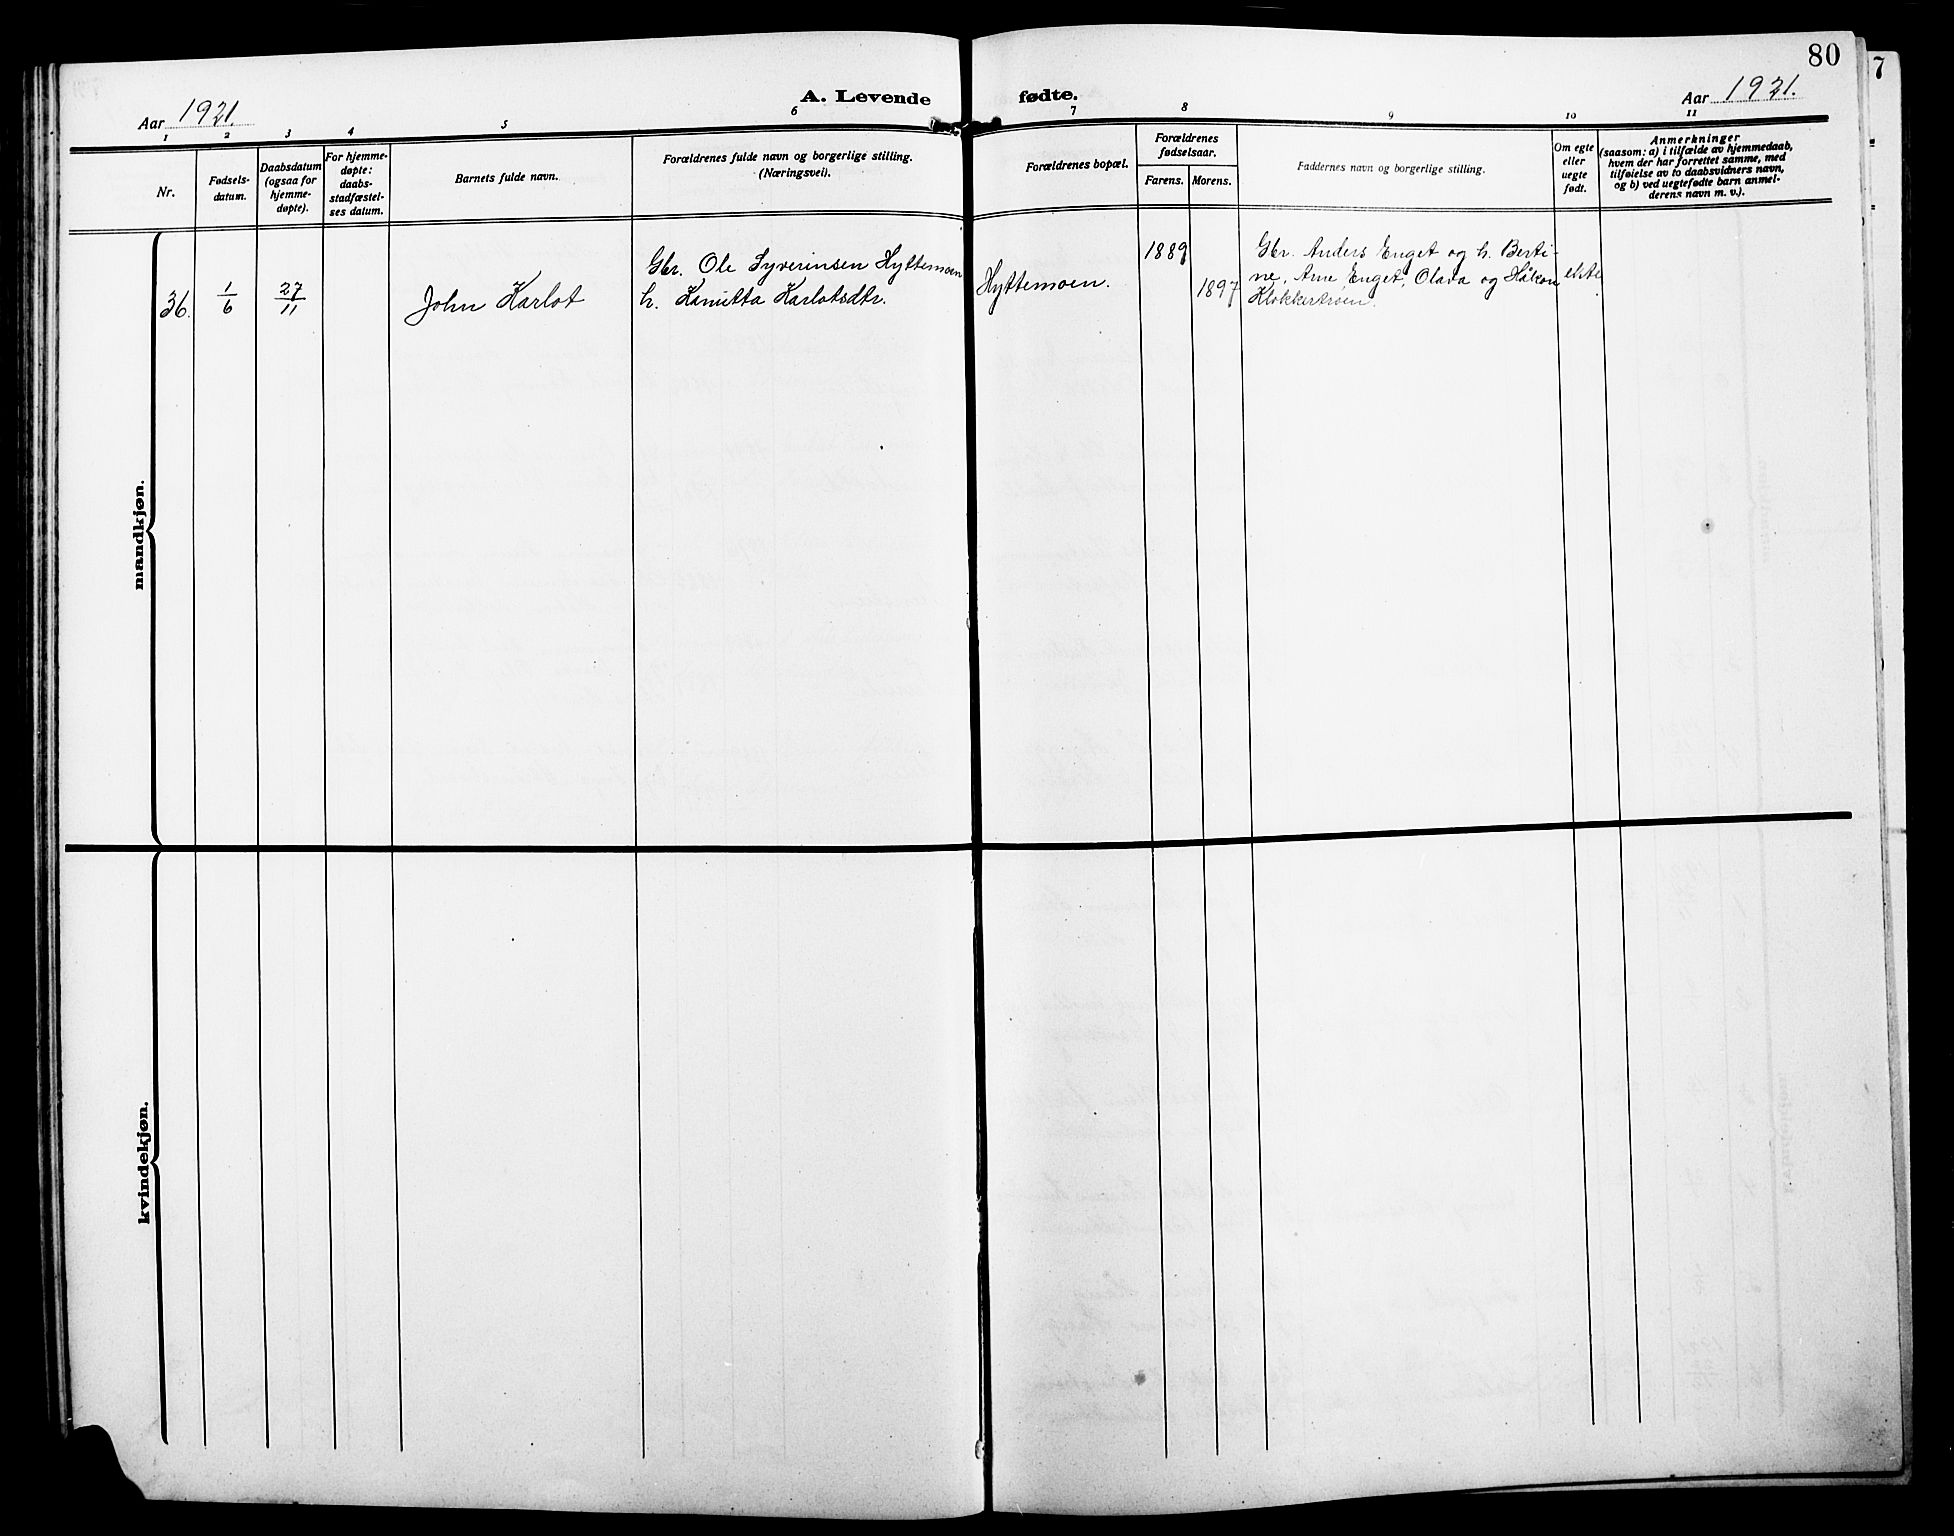 80
7
A. Levende fødte.
Aar 1921.
Aar 1921.
1 2 3 4 5 6 7 8 9 10 11
Nr.
Fødsels-
datum.
Daabsdatum
(ogsaa for
hjemme-
døpte).
For hjemme-
døpte:
daabs-
stadfæstel-
ses datum.
Barnets fulde navn.
Forældrenes fulde navn og borgerlige stilling.
(Næringsvei).
Forældrenes bopæl.
Forældrenes
fødselsaar.
Farens. Morens.
Faddernes navn og borgerlige stilling.
Om egte
eller
uegte
født.
Anmerkninger
(saasom: a) i tilfælde av hjemmedaab,
hvem der har forrettet samme, med
tilføielse av to daabsvidners navn,
og b) ved uegtefødte barn anmel-
derens navn m. v.).
mandkjøn.
36.
1/6
27/11
John Karlot
Gbr. Ole Syverinsen Hyttemoen
h. Kanutta Karlotsdtr.
Hyttemoen.
1889
1897
Gbr. Anders Enget og h. Berti-
ne, Arne Enget, Olava og Håkon
Klokkertroen.
ekte
kvindekjøn.